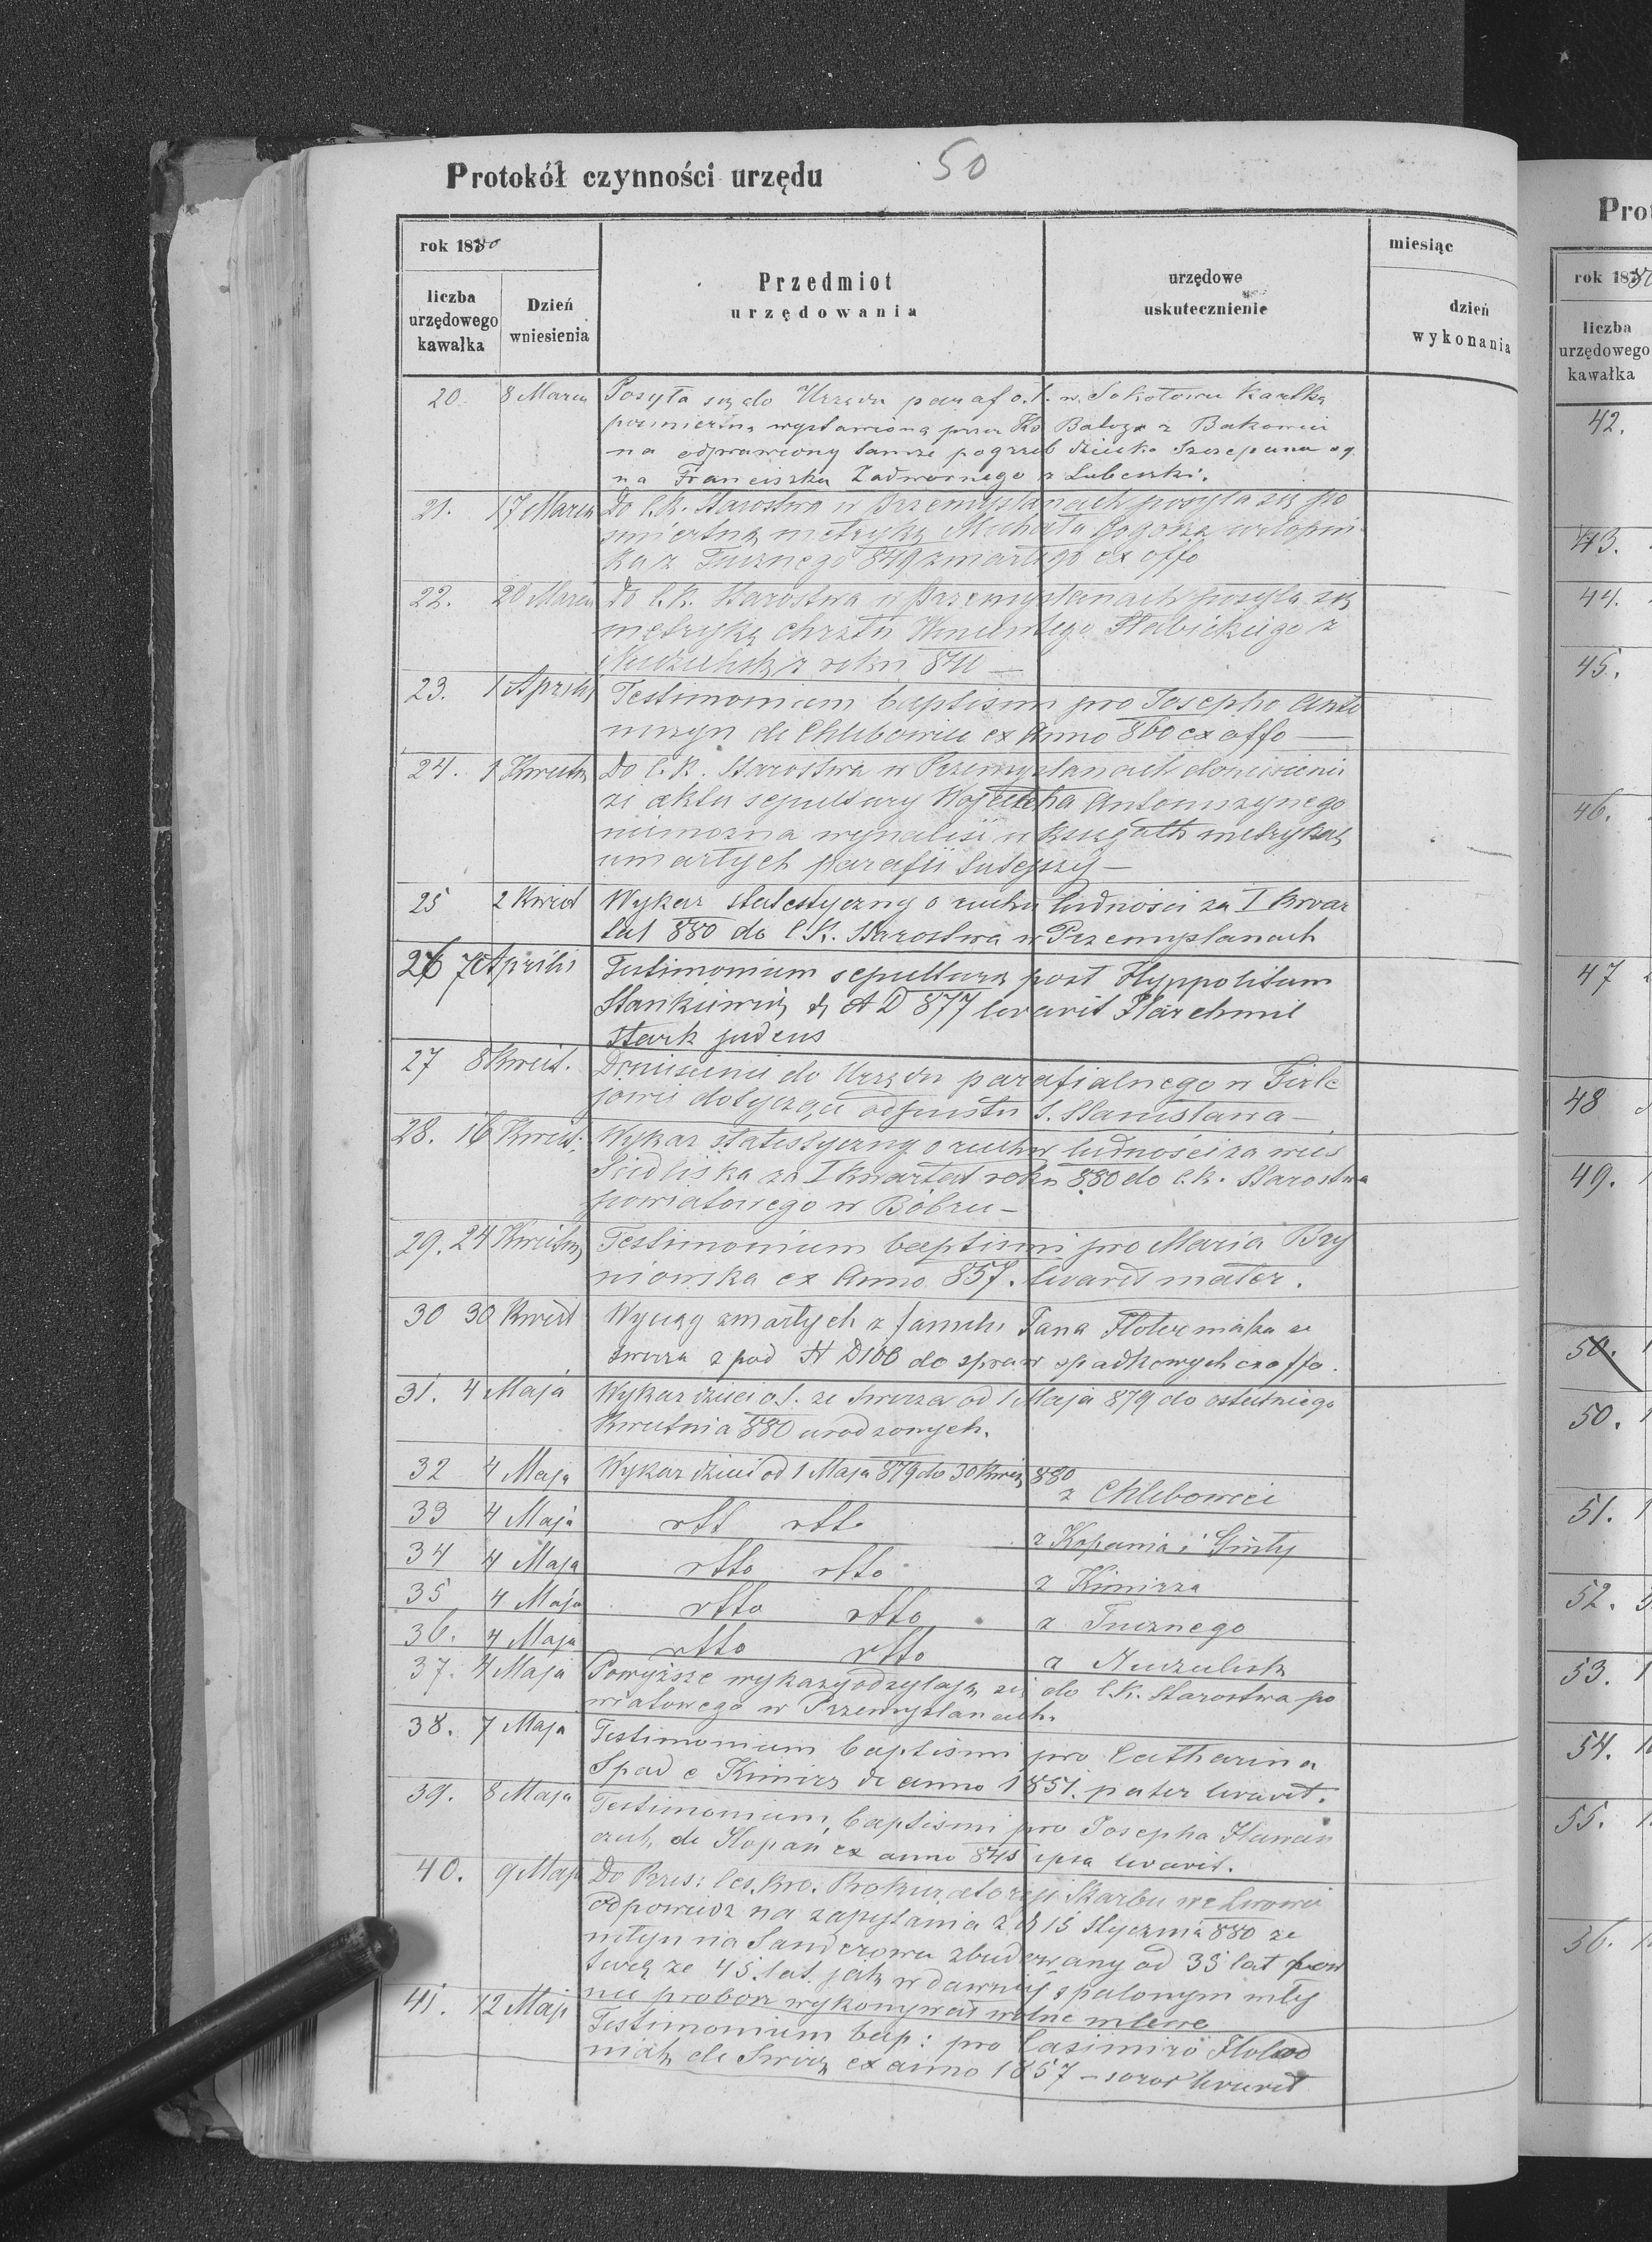 Protokół czynności urzędu
50
rok 1880
miesiąc
liczba urzędowego kawałka
Dzień wniesienia
Przedmiot urzędowania
urzędowe uskutecznienie
dzień wykonania
20. 8 Marca Posyła się do Urzędu paraf o. ł. w Sokołowie kartkę
pośmiertną wystawioną przez Ks Batoga z Bakowiec
na odprawiony tamże pogrzeb dziecka Szczepana sy
na Franciszka Zadwornego z Lubeszki.
21. 17 Marca Do C.K. Starostwa w Przemyślanach posyła się po
śmiertną metrykę Michała urlopni
ka z Tucznego 849 zmarłego ex offo
22. 20 Marca Do C.K. Starostwa w Przemyślanach posyła się
metrykę chrztu Wincentego Słabickiego z
z roku 841 —
23. 1 Aprilis Testimonium baptismi pro Josepho Anto
niszyn de Chlebowice ex Anno 860 ex offo —
24. 1 Kwietn Do C.K. Starostwa w Przemyślanach doniesienie
że aktu sepultury Wojciecha Antoniszynego
niemożna wynaleść w księgach metrykal
umarłych parafii tutejszej —
25 2 Kwiet Wykaz statestyczny o ruchu ludności za I kwar
tał 880 do C.K. Starostwa w Przemyslanach
26 7 Aprilis Testimonium sepultura post Hyppolitum
Stankiewicz A D 877 levavit
Stark judeus
27 8 Kwiet. Doniesienie do Urzędu parafialnego w Firle
jowie dotycząca odpustu S. Stanisława —
28. 16 Kwiet. Wykaz statestyczny o ruchu ludności za wieś
Siedliska za I kwartał roku 880 do C.K. Starostwa
powiatowego w Bóbrce —
29. 24 Kwietn Testimonium baptismi pro Maria Bry
niowska ex Anno 857. levavit mater.
30 30 Kwiet Wyciąg zmarłych z familii Jana ze
Swirza z pod N D 106 do spraw spadkowych ex offo.
31. 4 Maja Wykaz dzieci o.ł. ze Swirza od 1 Maja 879 do ostatniego
Kwietnia 880 urodzonych.
32 4 Maja Wykaz dzieci od 1 Maja 879 do 30 Kwie 880
z Chlebowiec
33 4 Maja dtt dtto z Kopania i Ginty
34 4 Maja dtto dtto z Kimirza
35 4 Maja dtto dtto z Tucznego
36. 4 Maja dtto dtto z
37. 4 Maja Powyższe wykazy odsyłają się do C.K. Starostwa po
wiatowego w Przemyślanach.
38. 7 Maja Testimonium baptismi pro Catharina
Spad e Kimirz de anno 1851. pater levavit.
39. 8 Maja Testimonium baptismi pro Josepha
de Kopań ex anno 845 ipsa levavit.
40. 9 Maja Do Prześ: Ces. Kro. Prokuratoryi Skarbu we Lwowie
odpowiedz na zapytania z d 15 Stycznia 880 że
młyn na Sanderowce zbudowany od 35 lat
że 45. lat jak w dawniej spalonym mły
nie proboszcz wykonywał wolne mlewo
41. 12 Maja Testimonium bap: pro Casimiro Hołod
niak de Swirz ex anno 1857 — soror levavit
Prot
rok 188
liczba urzędowego kawałka
42.
43.
44.
45.
46.
47
48
49.
50.
50.
51.
52.
53.
54.
55.
56.